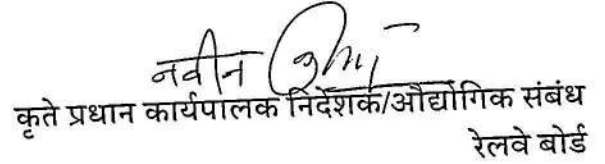 नवीन
कृते प्रधान कार्यपालक निदेशक/औद्योगिक संबंध
रेलवे बोर्ड